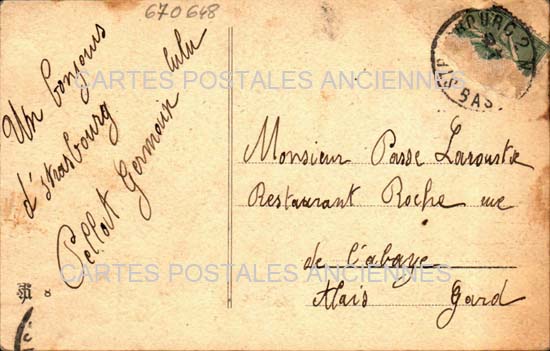 670648
Un bonjour
d'strasbourg
Pellat Germain lulu
CARTES POSTALES ANCIENNES
Monsieur Passe
Restaurant Roche rue
de l'abaye
Alais Gard
CARTES POSTALES ANCIENNES
8
BOURG 2
BAS